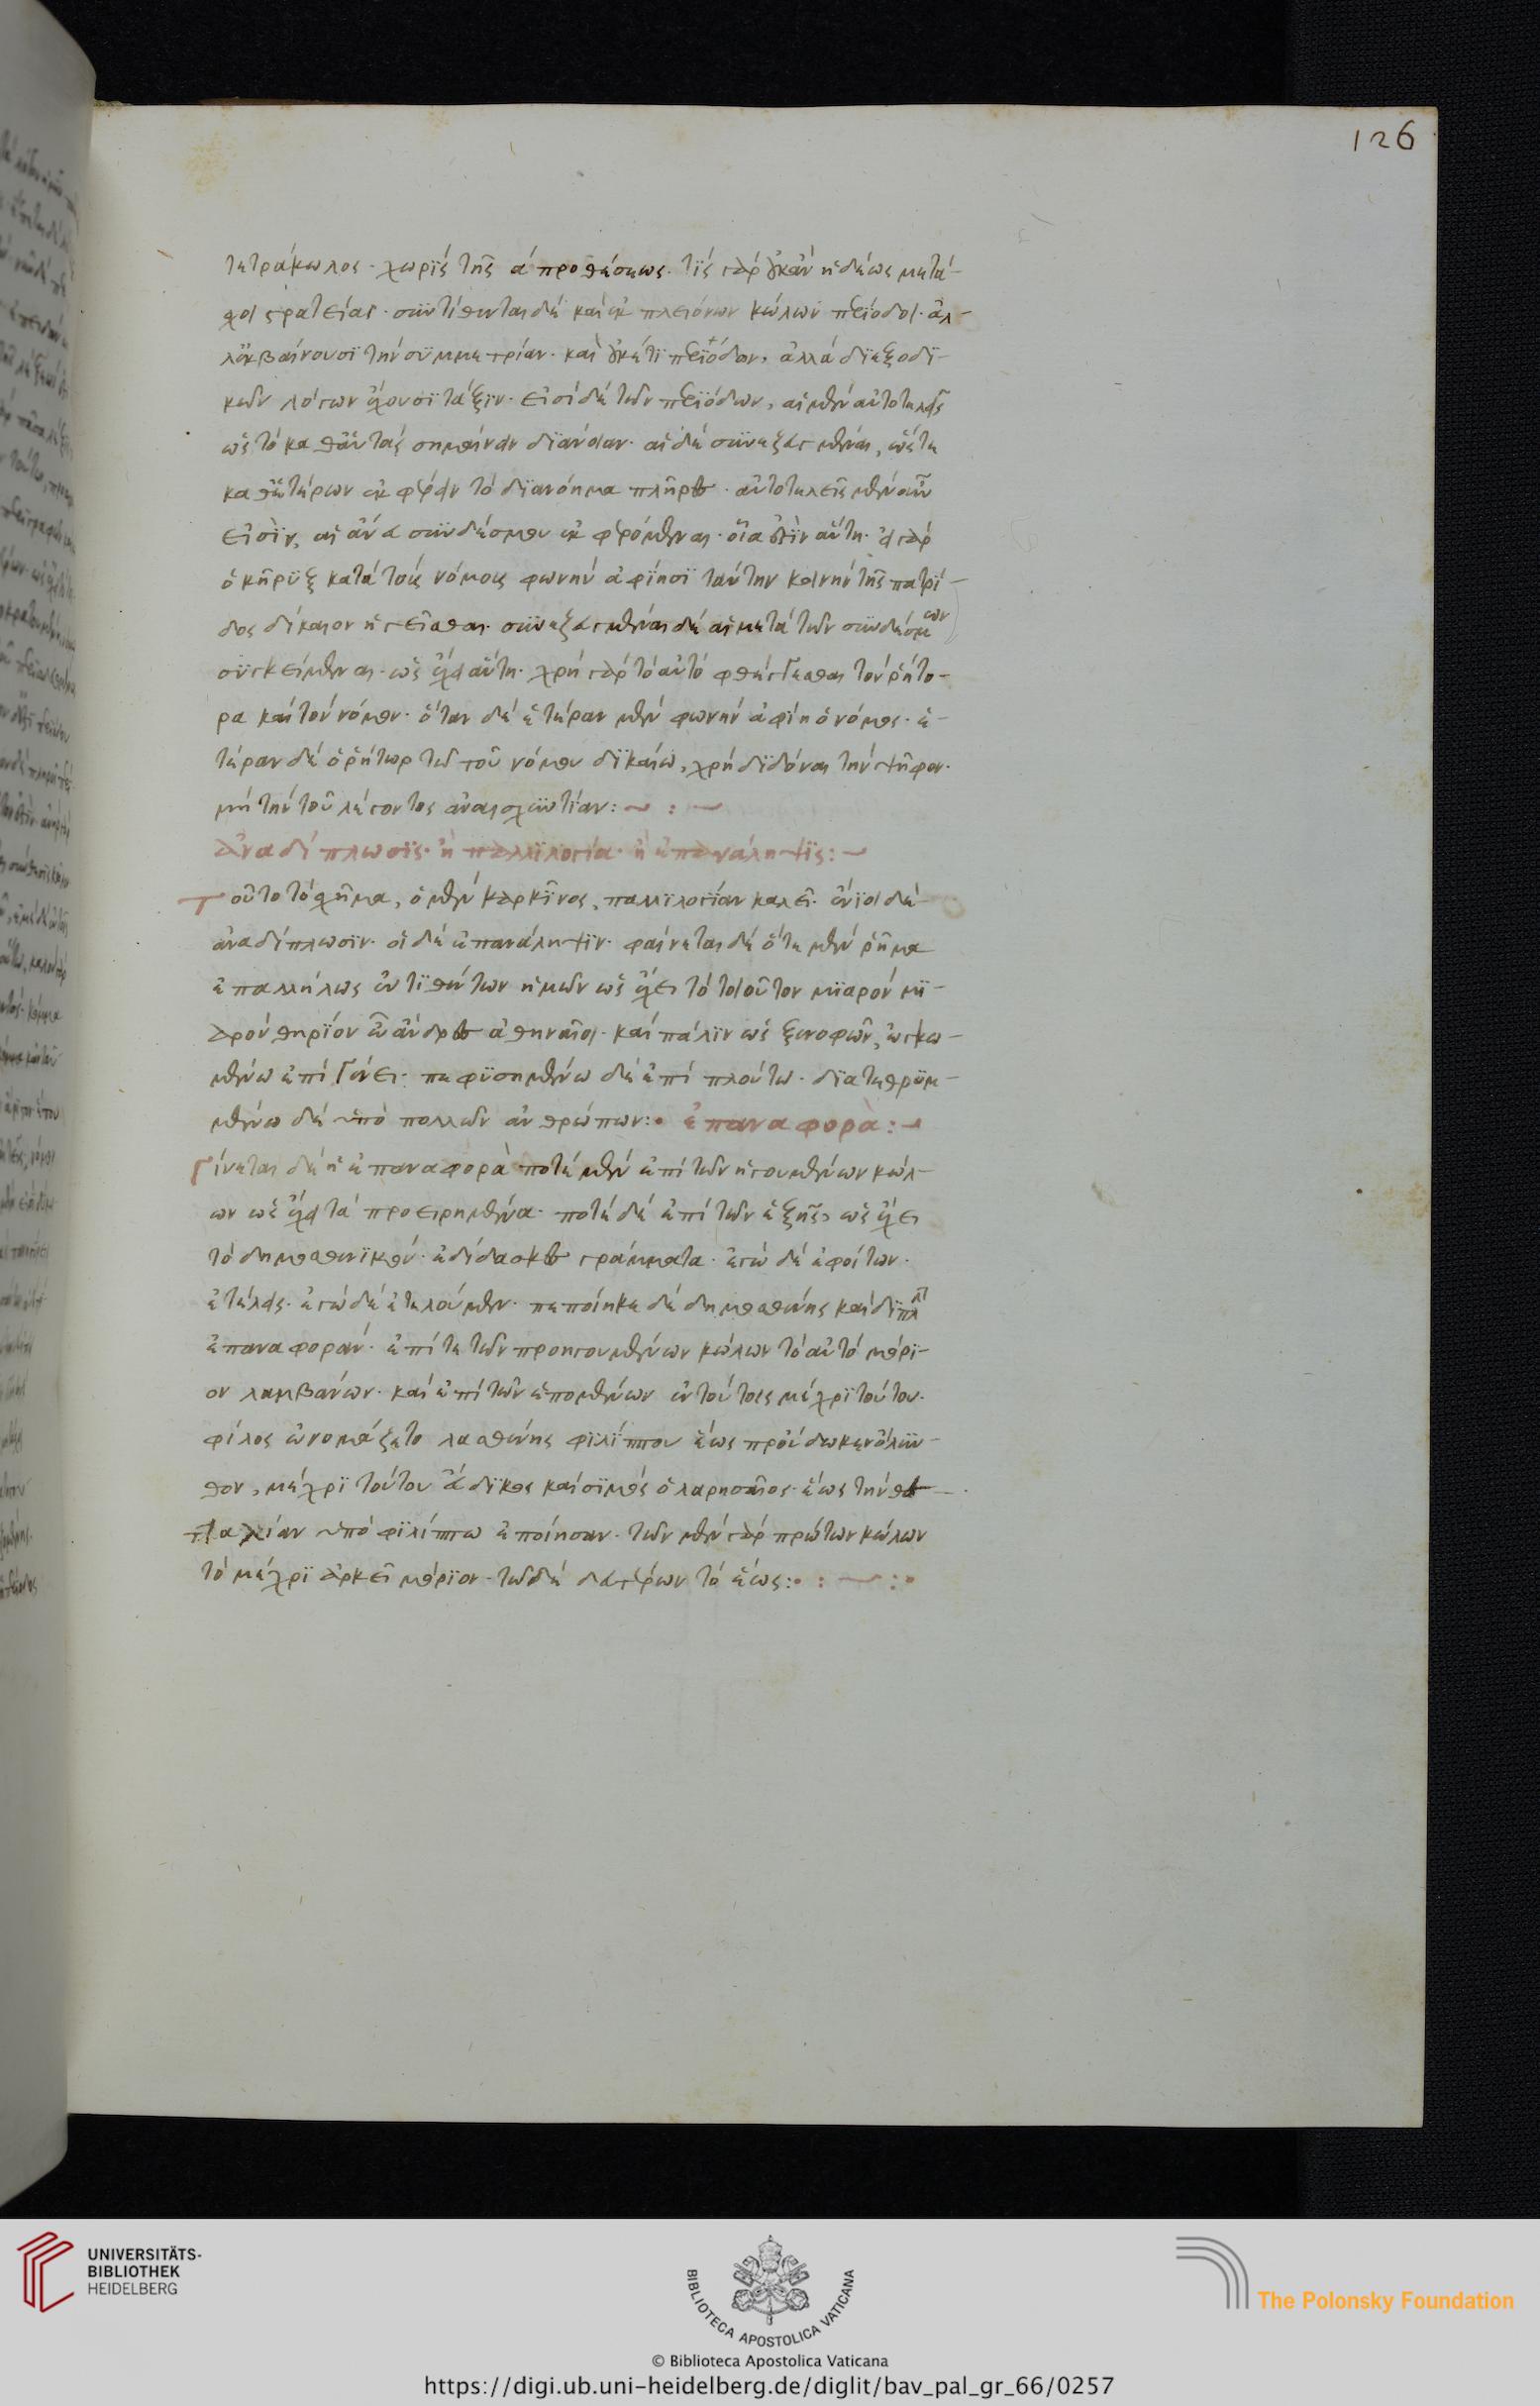 126
τετράκωλος· χωρὶς τῆς ἀπροθέσεως· τίς γὰρ οὐκ ἂν ἡδέως μετά-
σχοι στρατείας· συντίθενται δὲ καὶ ἐκ πλειόνων κώλων περίοδοι· ἀλ-
λ' ἐκβαίνουσι τὴν συμμετρίαν· καὶ οὐκέτι περιόδων, ἀλλὰ διεξοδι-
κῶν λόγων ἔχουσι τάξιν· εἰσὶ δὲ τῶν περιόδων, αἱ μὲν αὐτοτελεῖς
ὡς τὸ καθ' αὑτὰς σημαίνειν διάνοιαν· αἱ δὲ συνεζευγμέναι, ὥστε
καθ' ἑτέρων ἐκφέρειν τὸ διανόημα πλῆρες· αὐτοτελεῖς μὲν οὖν
εἰσὶν, αἱ ἄνευ συνδέσμου ἐκφερόμεναι· οἵα ἐστὶν αὕτη· εἰ γὰρ
ὁ κῆρυξ κατὰ τοὺς νόμους φωνὴν ἀφίησι ταύτην κοινὴν τῆς πατρί-
δος δίκαιον ἡγεῖσθαι· συνεζευγμέναι δὲ αἱ μετὰ τῶν συνδέσμων
συγκείμεναι· ὡς ἔχει αὕτη· χρὴ γὰρ τὸ αὐτὸ φθέγγεσθαι τὸν ῥήτο-
ρα καὶ τὸν νόμον· ὅταν δὲ ἑτέραν μὲν φωνὴν ἀφίη ὁ νόμος· ἑ-
τέραν δὲ ὁ ῥήτωρ τῷ τοῦ νόμου δικαίω, χρὴ διδόναι τὴν ψῆφον·
μὴ τὴν τοῦ λέγοντος ἀναισχυντίαν:
Ἀναδίπλωσις· ἢ παλλιλογία· ἢ ἐπανάληψις:
Τοῦτο τὸ σχῆμα, ὁ μὲν καρκῖνος, παλλιλογίαν καλεῖ· ἔνιοι δὲ
ἀναδίπλωσιν· οἱ δὲ ἐπανάληψιν· φαίνεται δὲ ὅτε μὲν ῥῆμα
ἐπαλλήλως ἐντιθέντων ἡμῶν ὡς ἔχει τὸ τοιοῦτον μιαρὸν μι-
αρὸν θηρίον ὦ ἄνδρες ἀθηναῖοι· καὶ πάλιν ὡς ξενοφῶν, ὠγκω-
μένω ἐπὶ γένει· πεφυσημένω δὲ ἐπὶ πλούτω· διατεθρυμ-
μένω δὲ ὑπὸ πολλῶν ἀνθρώπων: ἐπαναφορὰ:
Γίνεται δὲ ἡ ἐπαναφορὰ ποτὲ μὲν ἐπὶ τῶν ἡγουμένων κώλ-
ων ὡς ἔχει τὰ προειρημένα· ποτὲ δὲ ἐπὶ τῶν ἑξῆς, ὡς ἔχει
τὸ δημοσθενικὸν· ἐδίδασκες γράμματα· ἐγὼ δὲ ἐφοίτων·
ἐτέλεις· ἐγὼ δὲ ἐτελούμην· πεποίηκε δὲ δημοσθένης καὶ διπλ
ἐπαναφορὰν· ἐπί τε τῶν προηγουμένων κώλων τὸ αὐτὸ μόρι-
ον λαμβάνων· καὶ ἐπὶ τῶν ἑπομένων ἐν τούτοις μέχρι τούτου·
φίλος ὠνομάζετο λασθένης φιλίππου ἕως προύδωκεν ὄλυν-
θον, μέχρι τούτου εὔδικος καὶ σῖμος ὁ λαρησαῖος· ἕως τὴν θε
τταλίαν ὑπὸ φιλίππω ἐποίησαν· τῶν μὲν γὰρ πρώτων κώλων
τὸ μέχρι ἄρκει μόριον· τῶν δὲ δευτέρων τὸ ἕως:
UNIVERSITÄTS-
BIBLIOTHEK
HEIDELBERG
BIBLIOTECA APOSTOLICA VATICANA
The Polonsky Foundation
© Biblioteca Apostolica Vaticana
https://digi.ub.uni-heidelberg.de/diglit/bav_pal_gr_66/0257